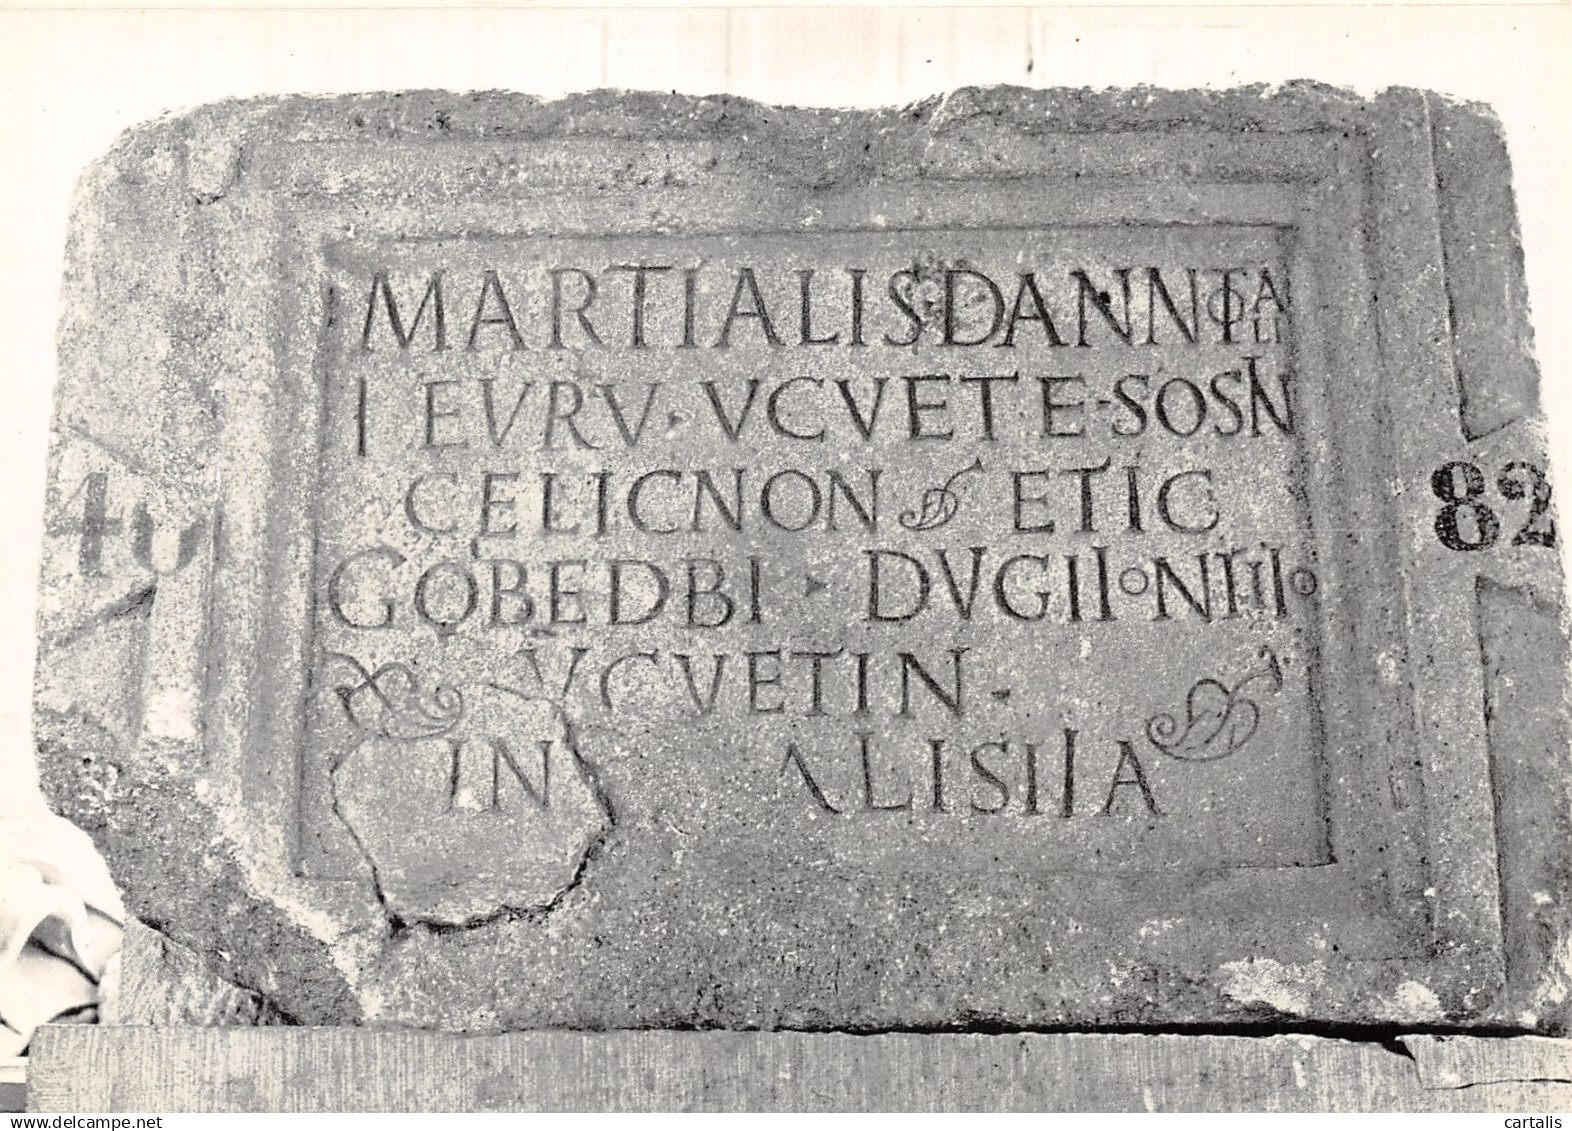 MARTIALIS DANNOTALI
IEVRV · VCVETE · SOSIN
CELICNON ETIC
GOBEDBI · DVGIIONTIIO
VCVETIN ·
IN ALISIIA
40
82
cartalis